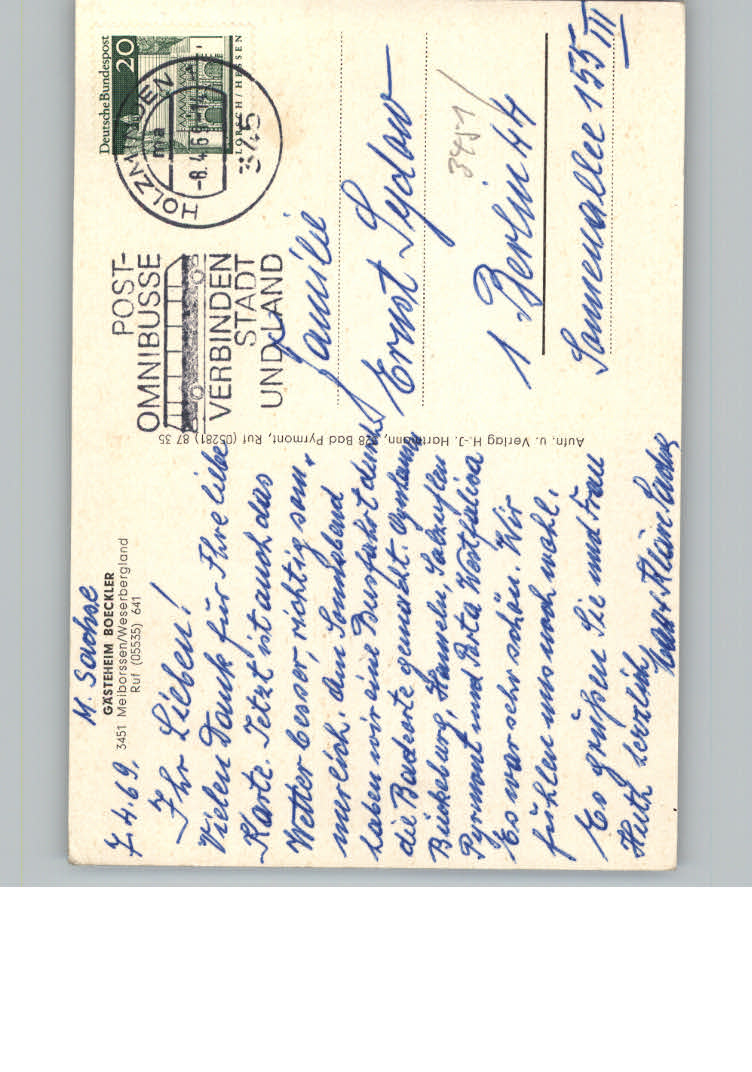 M. Sachse
GÄSTEHEIM BOECKLER
3451 Meiborssen/Weserbergland
Ruf (05535) 641
7.4.69.
Ihr Lieben!
Vielen Dank für Ihre liebe
Karte. Jetzt ist auch das
Wetter besser, richtig som-
merlich. Am Sonnabend
haben wir eine Busfahrt durch
die Badeorte gemacht.
Bückeburg, Hameln, Salzuflen
Pyrmont und Porta Westfalica
Es war sehr schön. Wir
fühlen uns noch wohl.
Es grüßen Sie und Frau
Huth herzlich
Sachse
Aufn. u. Verlag H.-J. Hartmann, 328 Bad Pyrmont, Ruf (05281) 87 35
POST-
OMNIBUSSE
VERBINDEN
STADT
UND LAND
Deutsche Bundespost
20
LORSCH/HESSEN
HOLZMINDEN
ma
-8.4.69-
345
Familie
Ernst Sydow
3451
1 Berlin 44
Sonnenallee 155 III